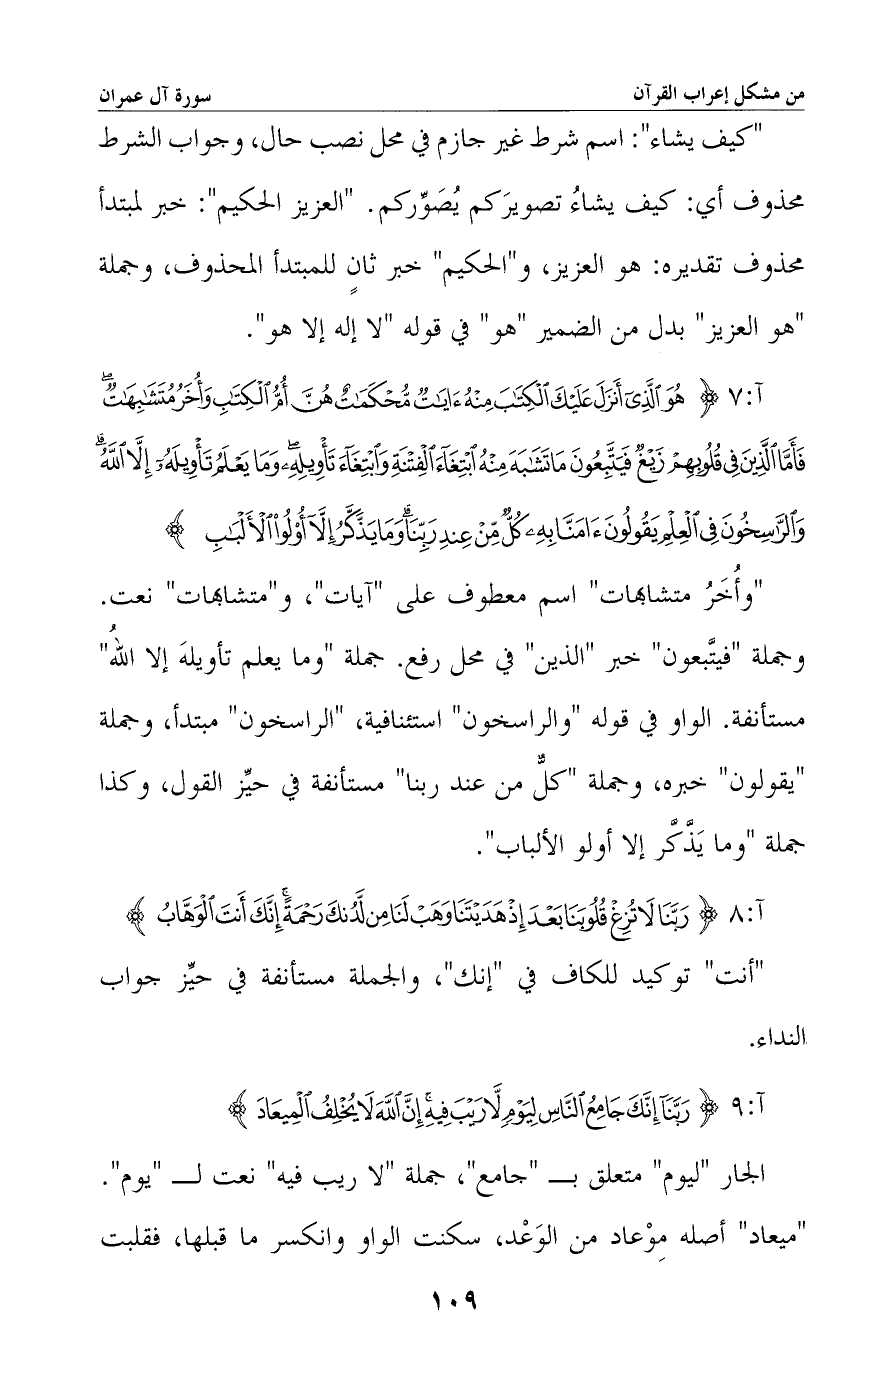 من مشكل إعراب القرآن
سورة آل عمران
"كيف يشاء": اسم شرط غير جازم في محل نصب حال، وجواب الشرط
محذوف أي: كيف يشاءُ تصويرَكم يُصَوِّركم. "العزيز الحكيم": خبر لمبتدأ
محذوف تقديره: هو العزيز، و"الحكيم" خبر ثانٍ للمبتدأ المحذوف، وجملة
"هو العزيز" بدل من الضمير "هو" في قوله "لا إله إلا هو".
آ:٧ ﴿ هُوَ ٱلَّذِىٓ أَنزَلَ عَلَيْكَ ٱلْكِتَٰبَ مِنْهُ ءَايَٰتٌ مُّحْكَمَٰتٌ هُنَّ أُمُّ ٱلْكِتَٰبِ وَأُخَرُ مُتَشَٰبِهَٰتٌۖ
فَأَمَّا ٱلَّذِينَ فِى قُلُوبِهِمْ زَيْغٌ فَيَتَّبِعُونَ مَا تَشَٰبَهَ مِنْهُ ٱبْتِغَآءَ ٱلْفِتْنَةِ وَٱبْتِغَآءَ تَأْوِيلِهِۦۖ وَمَا يَعْلَمُ تَأْوِيلَهُۥٓ إِلَّا ٱللَّهُۗ
وَٱلرَّٰسِخُونَ فِى ٱلْعِلْمِ يَقُولُونَ ءَامَنَّا بِهِۦ كُلٌّ مِّنْ عِندِ رَبِّنَاۗ وَمَا يَذَّكَّرُ إِلَّآ أُو۟لُوا۟ ٱلْأَلْبَٰبِ ﴾
"وأُخَرُ متشابهات" اسم معطوف على "آيات"، و"متشابهات" نعت.
وجملة "فيتَّبعون" خبر "الذين" في محل رفع. جملة "وما يعلم تأويلهَ إلا اللهُ"
مستأنفة. الواو في قوله "والراسخون" استئنافية، "الراسخون" مبتدأ، وجملة
"يقولون" خبره، وجملة "كلٌّ من عند ربنا" مستأنفة في حيِّز القول، وكذا
جملة "وما يَذَّكَّر إلا أولو الألباب".
آ:٨ ﴿ رَبَّنَا لَا تُزِغْ قُلُوبَنَا بَعْدَ إِذْ هَدَيْتَنَا وَهَبْ لَنَا مِن لَّدُنكَ رَحْمَةًۚ إِنَّكَ أَنتَ ٱلْوَهَّابُ ﴾
"أنت" توكيد للكاف في "إنك"، والجملة مستأنفة في حيِّز جواب
النداء.
آ:٩ ﴿ رَبَّنَآ إِنَّكَ جَامِعُ ٱلنَّاسِ لِيَوْمٍ لَّا رَيْبَ فِيهِۚ إِنَّ ٱللَّهَ لَا يُخْلِفُ ٱلْمِيعَادَ ﴾
الجار "ليوم" متعلق بـ "جامع"، جملة "لا ريب فيه" نعت لـ "يوم".
"ميعاد" أصله مِوْعاد من الوَعْد، سكنت الواو وانكسر ما قبلها، فقلبت
١٠٩